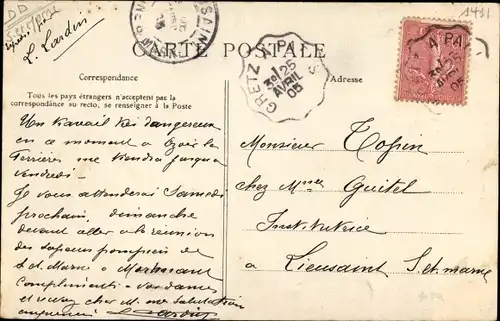 1411
L. Lardin
CARTE POSTALE
Correspondance
Adresse
Tous les pays étrangers n'acceptent pas la
correspondance au recto, se renseigner à la Poste
GRETZ A PARIS
25
AVRIL
05
Un travail très dangereux
en ce moment à
Ferrières me tiendra jusqu'à
vendredi
Je vous attenderai Samedi
prochain, dimanche
devant aller à la réunion
des sapeurs pompiers de
S. et Marne à
Compliments à ces dames
et recevez cher M. mes salutations
Lardin
Monsieur Topin
chez Melle Guitel
Institutrice
à Lieusaint S. et marne